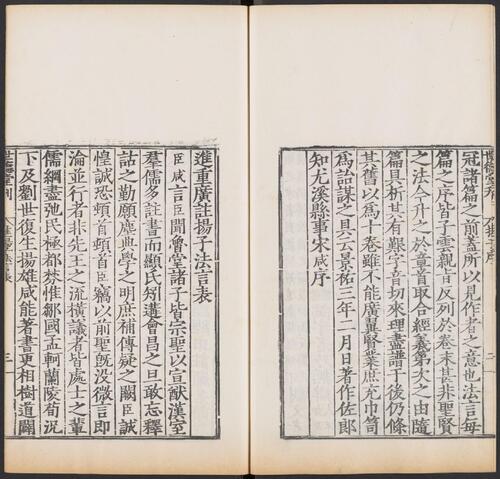 冠諸篇之前蓋所以見作者之意也法言每
篇之序皆子雲親旨反列於卷末甚非聖賢
之法今升之於章首取合經義第次之由隨
篇具析其有艱字音切來理盡譜于後仍條
其舊以為十卷雖不能廣翼賢業庶充巾笥
為詒謀之具云景祐三年二月日著作佐郎
知尤溪縣事宋咸序
進重廣註揚子法言表
臣咸言臣聞會堂諸子皆宗聖以宣猷漢室
羣儒多註書而顯氏矧遘會昌之旦敢忘釋
詁之勤願塵典學之明庶補傳疑之闕臣誠
惶誠恐頓首頓首臣竊以前聖既没微言即
淪並行者非先王之流橫議者皆處士之輩
儒綱盡弛民極都棼惟鄒國孟軻蘭陵荀況
下及劉世復生揚雄咸能著書更相樹道闢
世德堂刊